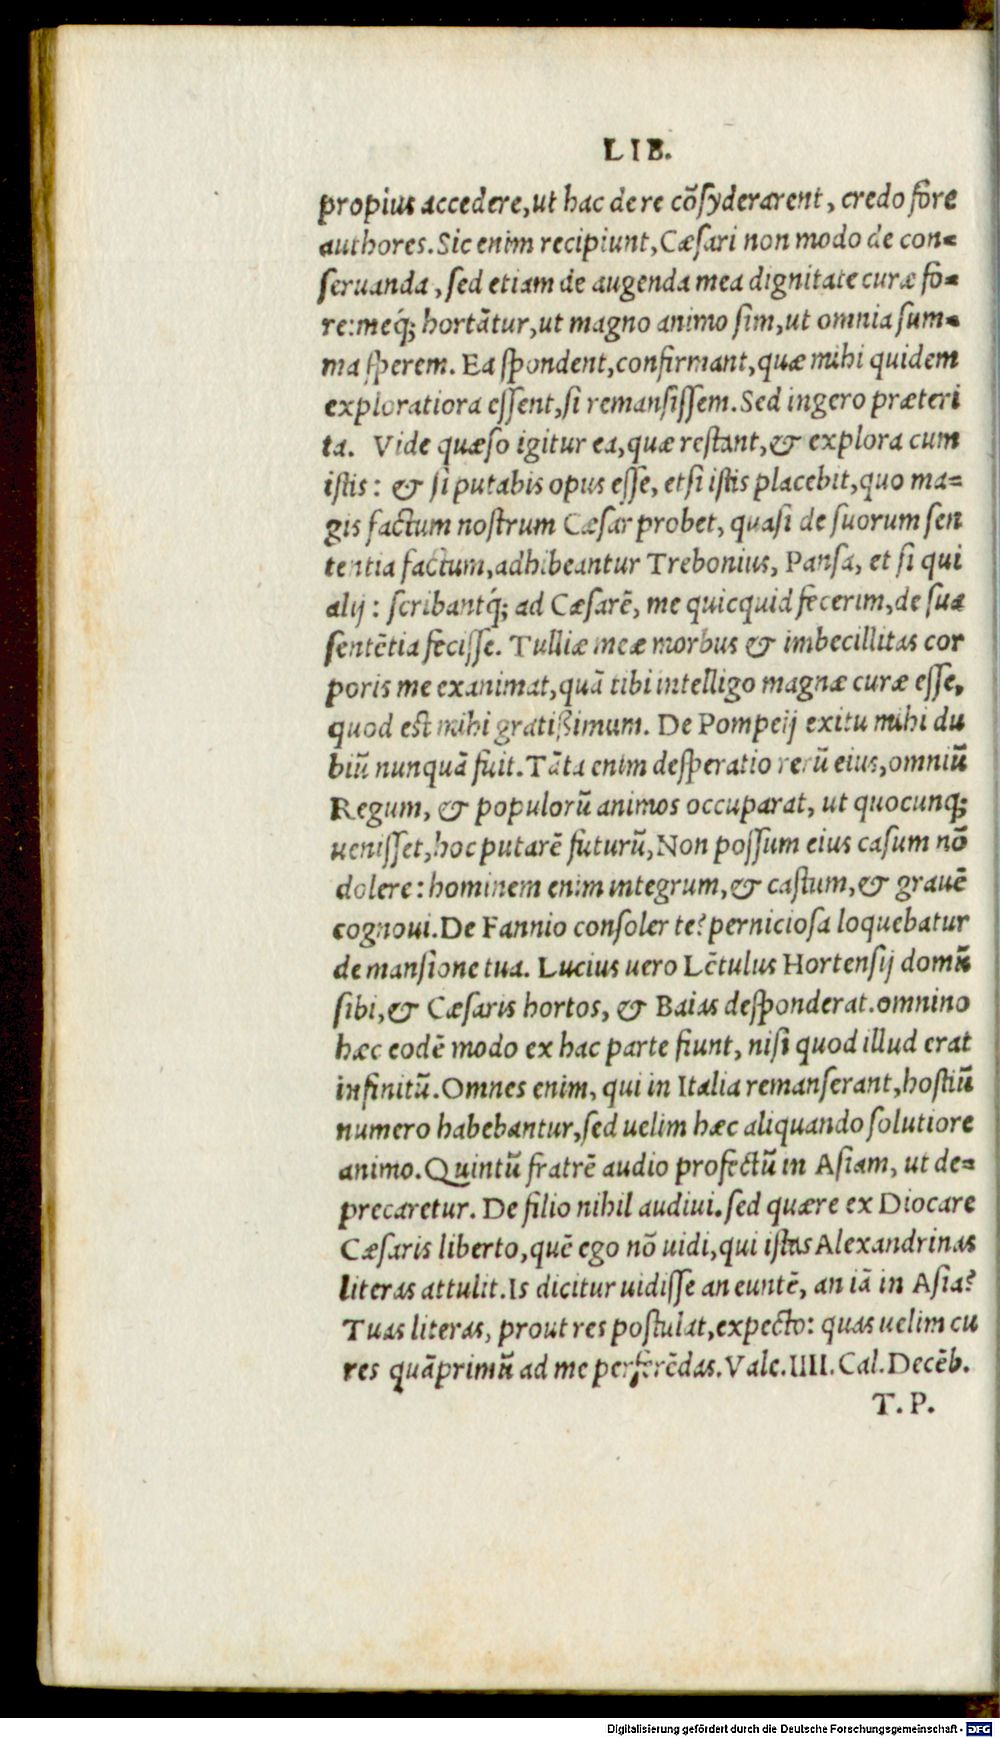 LIB.
propius accedere, ut hac de re cõsyderarent, credo fore
authores. Sic enim recipiunt, Cæsari non modo de con-
seruanda, sed etiam de augenda mea dignitate curæ fo-
re: meq́; hortãtur, ut magno animo sim, ut omnia sum-
ma sperem. Ea spondent, confirmant, quæ mihi quidem
exploratiora essent, si remansissem. Sed ingero præteri
ta. Vide quæso igitur ea, quæ restant, & explora cum
istis: & si putabis opus esse, et si istis placebit, quo ma-
gis factum nostrum Cæsar probet, quasi de suorum sen
tentia factum, adhibeantur Trebonius, Pansa, et si qui
alij: scribantq́; ad Cæsarẽ, me quicquid fecerim, de sua
sentẽtia fecisse. Tulliæ meæ morbus & imbecillitas cor
poris me exanimat, quã tibi intelligo magnæ curæ esse,
quod est mihi gratißimum. De Pompeij exitu mihi du
biũ nunquã fuit. Tãta enim desperatio rerũ eius, omniũ
Regum, & populorũ animos occuparat, ut quocunq;
uenisset, hoc putarẽ futurũ, Non possum eius casum nõ
dolere: hominem enim integrum, & castum, & grauẽ
cognoui. De Fannio consoler te? perniciosa loquebatur
de mansione tua. Lucius uero Lẽtulus Hortensij domũ
sibi, & Cæsaris hortos, & Baias desponderat. omnino
hæc eodẽ modo ex hac parte fiunt, nisi quod illud erat
infinitũ. Omnes enim, qui in Italia remanserant, hostiũ
numero habebantur, sed uelim hæc aliquando solutiore
animo. Quintũ fratrẽ audio profectũ in Asiam, ut de-
precaretur. De filio nihil audiui. sed quære ex Diocare
Cæsaris liberto, quẽ ego nõ uidi, qui istas Alexandrinas
literas attulit. Is dicitur uidisse an euntẽ, an iã in Asia?
Tuas literas, prout res postulat, expecto: quas uelim cu
res quãprimũ ad me perferẽdas. Vale. IIII. Cal. Decẽb.
T. P.
Digitalisierung gefördert durch die Deutsche Forschungsgemeinschaft - DFG